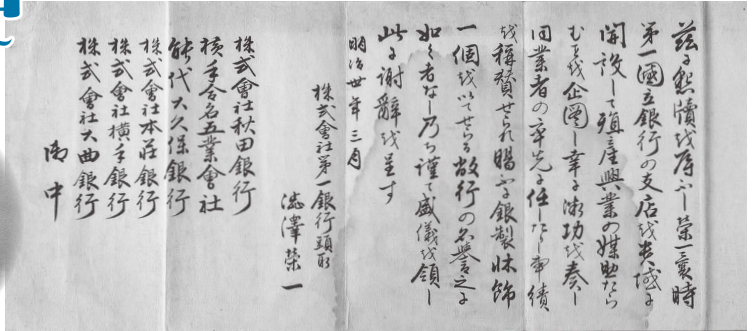 茲ニ懇牘ヲ辱ふし榮一曩時
第一國立銀行の支店を貴域に
開設して殖産興業の媒助たら
むことを企圖し幸に微功を奏し
同業者の率先に任したる事績
を稱賛せられ賜ふに銀製牀飾
一個を以てせらる敝行の名譽之に
如く者なし乃ち謹て盛儀を領し
此に謝辭を呈す
明治卅年三月
株式會社第一銀行頭取
澁澤榮一
株式會社秋田銀行
横手合名五業會社
能代大久保銀行
株式會社本荘銀行
株式會社横手銀行
株式會社大曲銀行
御中